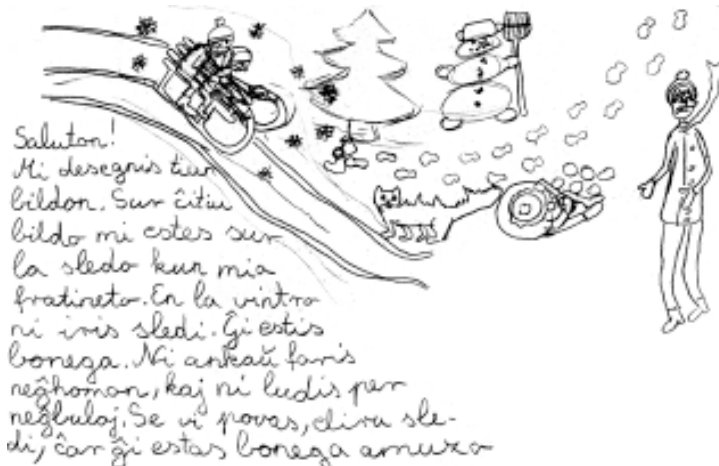 Saluton!
Mi desegnis tiun
bildon. Sur ĉitiu
bildo mi estes sur
la sledo kun mia
fratineto. En la vintro
ni iris sledi. Ĝi estis
bonega. Ni ankaŭ faris
neĝhomon, kaj ni ludis per
neĝbuloj. Se vi povas, diru sle-
di, ĉar ĝi estas bonega amuzo